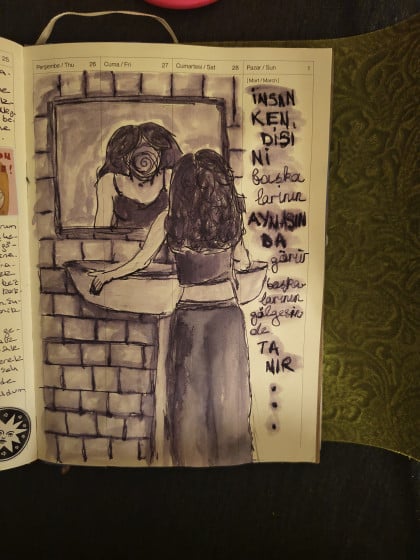 Perşembe / Thu 26
Cuma / Fri 27
Cumartesi / Sat 28
Pazar / Sun 1
[Mart / March]
İNSAN
KEN,
DİSİ
Nİ
başka
larının
AYNASIN
DA
görür
başka
larının
gölgesin
de
TA
NIR
.
.
.